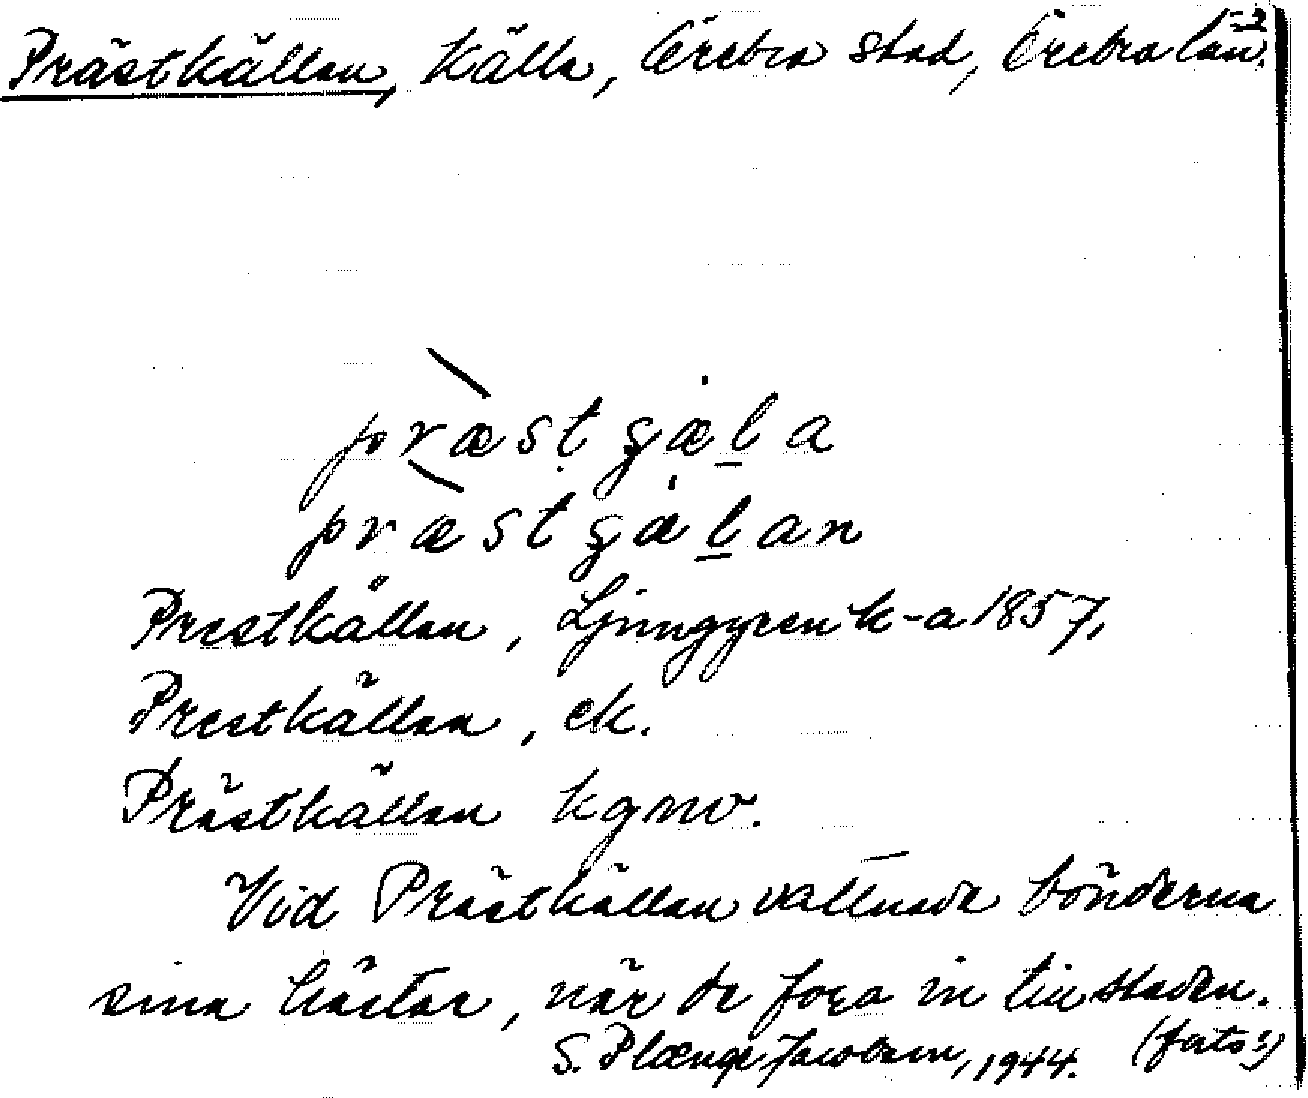 Prästkällan, källa, Örebro stad, Örebro län.
præstgæla
præstgælan
Prestkällan, Ljunggren k-a 1857,
Prestkällan, ek.
Prästkällan kgmv.
Vid Prästkällan vattnade bönderna
sina hästar, när de foro in till staden.
S. Plænge Jacobson, 1944. (foto!)